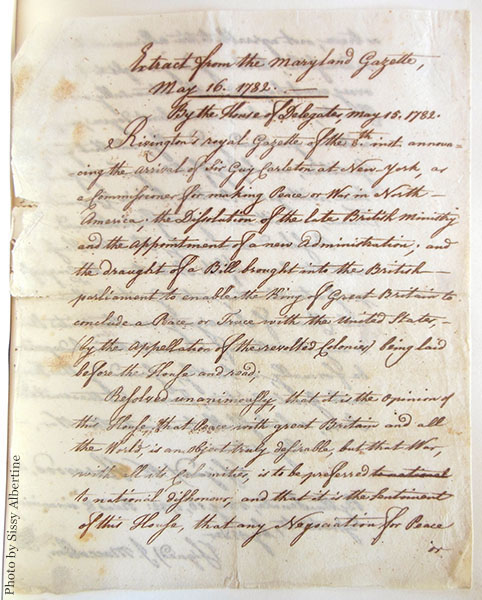 Extract from the Maryland Gazette,
May 16. 1782.
By the House of Delegates, May 15. 1782.
Rivington's royal Gazette of the 8th inst. annoue-
-cing the arrival of Sir Guy Carleton at New York, as
a Commissioner for making Peace or War in North-
America, the Disolution of the late British Ministry
and the appointment of a new administration, and
the draught of a Bill brought into the British
parliament to enable the King of Great Britain to
conclude a Peace or Truce with the United States,
(by the appellation of the revolted Colonies) being laid
before the House and read;
Resolved unanimously, that it is the Opinion of
this House, that Peace with great Britain and all
the World, is an object truly desirable, but, that War,
with all its Calamities, is to be preferred to national
to national dishonour, and that it is the Sentiment
of this House, that any Negociation for Peace
or
Photo by Sissy Albertine